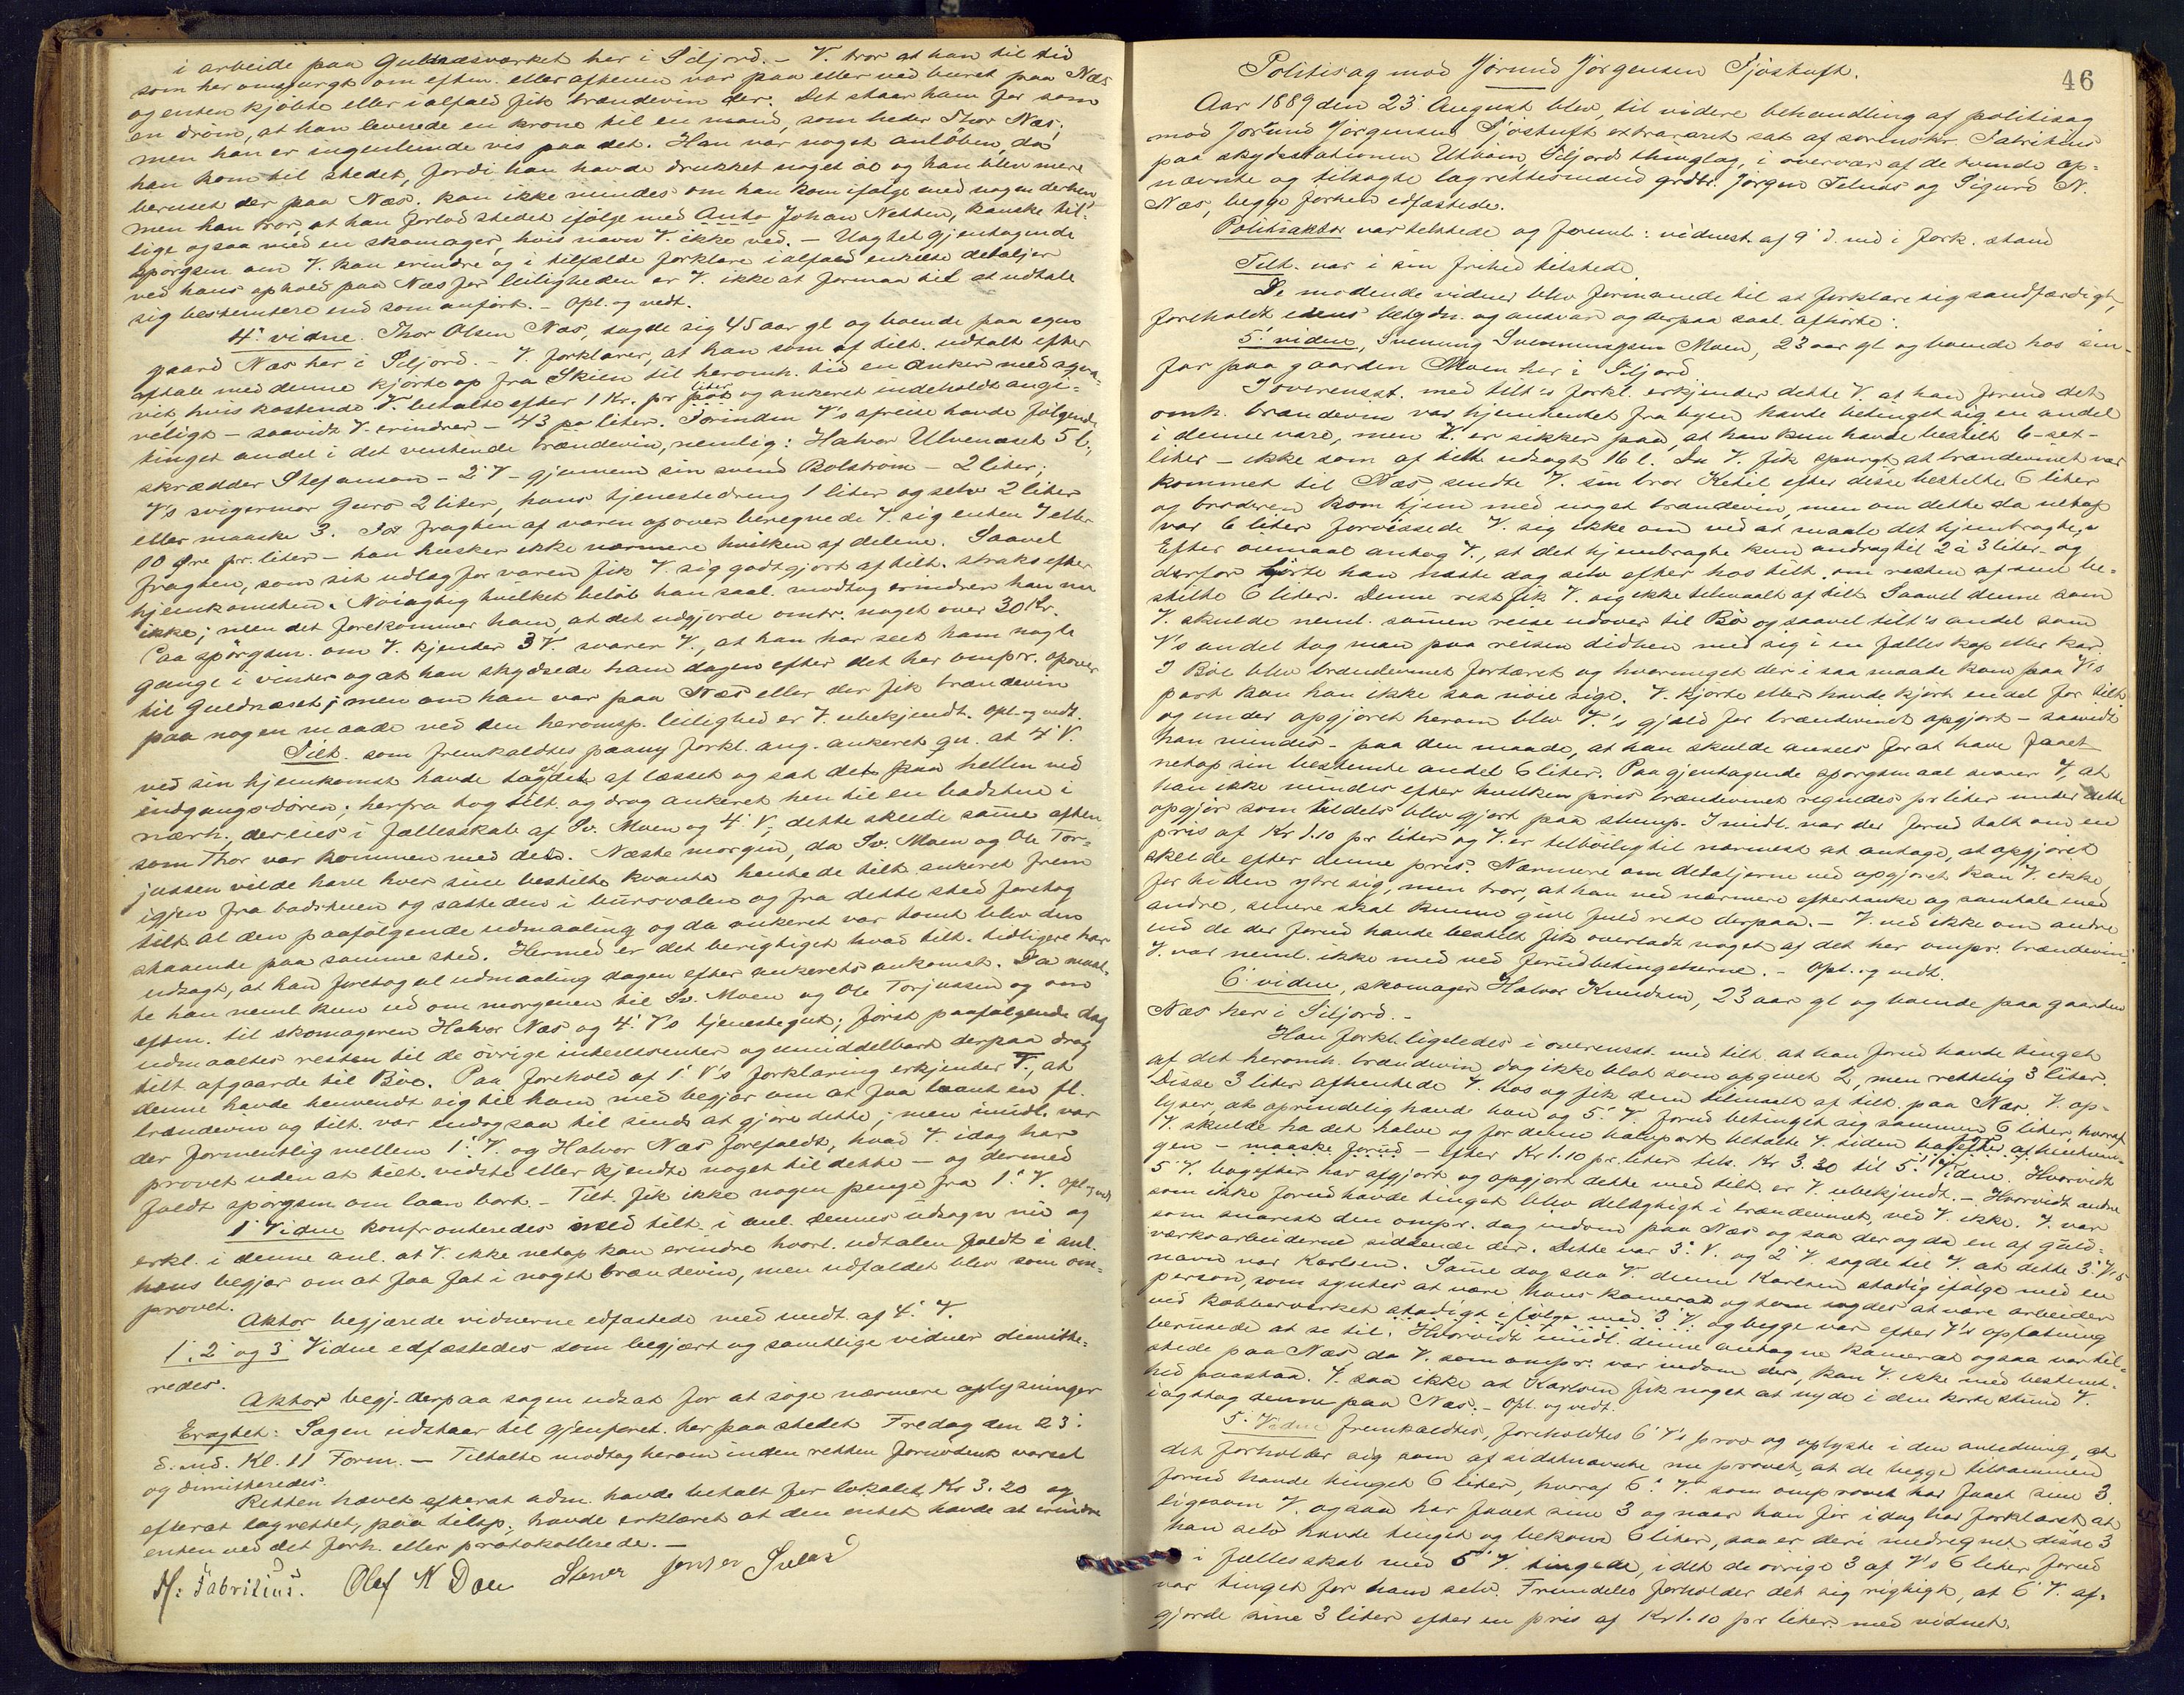 i arbeide paa Guldnæsværket her i Siljord. – V. tror at han til tid
som her omspurgt om eftm. eller aftenen var paa eller ved buret paa Næs
og enten kjöbte eller ialfald fik brændevin der. Det staar ham for som
en dröm, at han leverede en krone til en mand, som heder Thor Næs,
men han er ingenlunde vis paa det. Han var noget anlöben, da
han kom til stedet, fordi han havde drukket noget öl og han blev mere
beruset der paa Næs. kan ikke mindes om han kom ifölge med nogen derhen
men han tror, at han forlod stedet ifölge med Anto Johan Netten, kanske til-
lige ogsaa med en skomager, hvis navn V. ikke ved. – Uagtet gjentagende
spörgsm om V. kan erindre og i tilfælde forklare ialfald enkelte detaljer
ved hans ophold paa Næs før leiligheden er V. ikke at formaa til at udtale
sig bestemtere end som anfört. – Opl. og vedt.
4' vidne. Thor Olsen Næs, sagde sig 45 aar gl og boende paa egen
gaard Næs her i Siljord. – V. forklarer, at han som af tilt. udtalt efter
aftale med denne kjörte op fra Skien til heromh. tid en anker med aqva-
vit hvis kostende V. betalte efter 1 Kr. pr pot liter og ankeret indeholdt angi-
veligt – saavidt V. erindrer – 43 pa liter. Forinden V's afreise havde fölgende
tinget andel i det ventende brændevin, nemlig: Halvor Ulvenæset 5 l,
skrædder Stefansen – 2' V – gjennem sin svend Bolström – 2 liter,
V's svigermor Guro 2 liter, hans tjenestedreng 1 liter og selv 2 liter
eller maaske 3. For fragten af varen opover beregnede V. sig enten 7 eller
10 Øre pr. liter – han husker ikke nærmere hvilken af delene. Saavel
fragten, som sit udlæg for varen fik V. sig godtgjort af tilt. straks efter
hjemkomsten. Nöiagtig hvilket belöb han saal. modtog erindrer han nu
ikke; men det forekommer ham, at det udgjorde omtr. noget over 30 Kr.
Paa spörgsm. om V. kjender 3 V. svarer V., at han har seet ham nogle
gange i vinter og at han skydsede ham dagen efter det her ompr. opover
til Guldnæset; men om han var paa Næs eller der fik brændevin
paa nogen maade ved den heromsp. leilighed er V. ubekjendt. Opl. og vedt.
Tilt. som fremkaldtes paany forkl. ang. ankeret gn. at 4' V.
ved sin hjemkomst havde taget det af læsset og sat det paa hellen ved
indgangsdören; herfra tog tilt. og drog ankeret hen til en badstue i
nærh., der eies i fællesskab af Sv. Moen og 4' V; dette skede same aften
som Thor var kommen med det. Næste morgen, da Sv. Moen og Ole Tor-
jussen vilde have hver sine bestilte kvanta hentede tilt ankeret frem
igjen fra badstuen og satte den i bursvalen og fra dette sted foretog
tilt al den paafölgende udmaaling og da ankeret var tomt blev den
staaende paa samme sted. Hermed er det berigtiget hvad tilt. tidligere har
udsagt, at han foretog al udmaaling dagen efter ankerets ankomst. Da maal-
te han neml. kun ud om morgenen til Sv. Moen og Ole Torjussen og om
eftm. til skomageren Halvor Næs og 4' V's tjenestegut; först paafölgende dag
udmaaltes resten til de övrige interessenter og umiddelbart derpaa drog
tilt afgaarde til Böe. Paa forehold af 1' V's forklaring erkjender T., at
denne havde henvendt sig til ham med begjær om at faa laant en fl.
brændevin og tilt. var endog saa til sinds at gjöre dette; men imidl. var
der formentlig mellem 1' V. og Halvor Næs forefaldt, hvad V. idag har
provet uden at tilt. vidste eller kjendte noget til dette – og dermed
faldt spörgsm. om laan bort. – Tilt. fik ikke nogen penge fra 1' V. Opl. og vedt.
1' Vidne konfronteredes med tilt. i anl. dennes udsagn nu og
erkl. i denne anl. at V. ikke netop kan erindre hvorl. udtalen faldt i anl.
hans begjær om at faa fat i noget brændevin, men udfaldet blev som om-
provet.
Aktor begjærede vidnerne edfæstede med undt. af 4' V.
1', 2' og 3' Vidne edfæstedes som begjært og samtlige vidner dimitte-
redes.
Aktor begj. derpaa sagen udsat for at söge nærmere oplysninger
Eragtet: Sagen udstaar til gjenforet. her paa stedet Fredag den 23'
d. md. Kl. 11 Form. – Tiltalte modtog herom inden retten fornödent varsel
og dimitteredes.
Retten hævet efterat adm. havde betalt for lokalet Kr 3.20 og
efterat lagrettet, paa tilsp., havde erklæret at den intet havde at erindre
enten ved det forh. eller protokollerede. –
H. Fabritius. Olaf N Dale Stener Jenser Svelad
46
Politisag mod Jörund Jörgensen Sjöstuft.
Aar 1889 den 23' August blev, til videre behandling af politisag
mod Jörund Jörgensen Sjöstuft extraræret sat af sorenskr. Fabritius
paa skydsstationen Utböen, Siljords thinglag, i overvær af de tvende op-
nævnte og tilsagte lagrettesmænd grdbr. Jörgen Telnæs og Sigurd N.
Næs, begge forhen edfæstede.
Politiaktor var tilstede og freml.: vidnest. af 9' d. md i fork. stand
Tilt. var i sin frihed tilstede.
De mödende vidner blev formanede til at forklare sig sandfærdigt,
foreholdt edens betydn. og ansvar og derpaa saal. afhörte:
5' vidne, Svenung Svenningsen Moen, 23 aar gl og boende hos sin
far paa gaarden Moen her i Siljord
I overensst. med tilt's forkl. erkjender dette V. at han forud det
omh. brændevin var hjemhentet fra byen havde betinget sig en andel
i denne vare, men V. er sikker paa, at han kun havde bestilt 6–sex–
liter – ikke som af tilt udsagt 16 l. Da V. fik spurgt at brændevinet var
kommet til Næs sendte V. sin bror Ketil efter disse bestilte 6 liter
og broderen kom hjem med noget brændevin, men om dette da netop
var 6 liter forvissede V. sig ikke om ved at maale det hjembragte.
Efter öiemaal antog V., at det hjembragte kun androg til 2 à 3 liter og
derfor hörte han næste dag selv efter hos tilt. om resten af sine be-
stilte 6 liter. Denne rest fik V. sig ikke tilmaalt af tilt. Saavel denne som
V. skulde neml. samen reise udover til Bö og saavel tilt's andel som
V's andel tog man paa reisen didhen med sig i en fælles kop eller kar.
I Böe blev brændevinet fortæret og hvormeget der i saa maade kom paa V's
part kan han ikke saa nöie sige. V. kjörte eller havde kjört endel for tilt.
og under opgjöret herom blev V.'s gjæld for brændevinet opgjort – saavidt
han mindes – paa den maade, at han skulde ansees for at have faaet
netop sin bestemte andel 6 liter. Paa gjentagende spörgsmaal svarer V., at
han ikke mindes efter hvilken pris brændevinet regnedes pr liter under dette
opgjör som tildels blev gjort paa slump. Imidl. var der forud talt om en
pris af Kr 1.10 pr liter og V. er tilböielig til nærmest at antage, at opgjöret
skede efter denne pris. Nærmere om detaljerne ved opgjöret kan V. ikke
for tiden ytre sig, men tror, at han ved nærmere eftertanke og samtale med
andre, senere skal kunne give fuld rede derpaa. – V. ved ikke om andre
end de der forud havde bestilt fik overladt noget af det her ompr. brændevin.
V. var neml. ikke med ved forudbetingelserne. – Opl. og vedt.
6' vidne, skomager Halvor Knudsen, 23 aar gl og boende paa gaarden
Næs her i Siljord. –
Han forkl. ligeledes i overensst. med tilt. at han forud havde tinget
af det heromh. brændevin, dog ikke blot som opgivet 2, men rettelig 3 liter.
Disse 3 liter afhentede V. hos og fik dem tilmaalt af tilt. paa Næs. V. op-
lyser, at oprindelig havde han og 5' V. forud betinget sig sammen 6 liter, hvoraf
V. skulde ha det halve og for denne halvpart betalte V. siden bagefter afhentnin-
gen – maaske forud – efter Kr 1.10 pr. liter tils. Kr 3.30 til 5' Vidne. Hvorvidt
5' V. bagefter har afgjort og opgjort dette med tilt. er V. ubekjendt. – Hvorvidt andre
som ikke forud havde tinget blev delagtigt i brændevinet, ved V. ikke. V. var
som snarest den ompr. dag indom paa Næs og saa der og da en af guld-
værksarbeiderne siddende der. Dette var 3' V. og 2' V. sagde til V. at dette 3' V's
navn var Karlsen. Same dag saa V. denne Karlsen stadig ifölge med en
person, som syntes at være hans kamerad og som sagdes at være arbeider
ved kobberværket stadigt ifölge med 3' V. og begge var efter V's opfatning
berusede at se til. Hvorvidt imidl. denne antagne kamerat ogsaa var til-
stede paa Næs, da V. som ompr. var indom der, kan V. ikke med bestemt-
hed paastaa. V. saa ikke at Karlsen fik noget at nyde i den korte stund V.
iagttog denne paa Næs. – Opl. og vedt.
5' Vidne fremkaldtes, foreholdtes 6' V's prov og oplyste i den anledning, at
det forholder sig som af sidstnævnte nu provet, at de begge tilsammen
forud havde tinget 6 liter, hvoraf 6' V. som omprovet har faaet sine 3
ligesom V. ogsaa har faaet sine 3 og naar han för idag har forklaret at
han selv havde tinget og bekom 6 liter, saa er deri medregnet disse 3
i fællesskab med 5' V. tingede, idet de övrige 3 af V's 6 liter forud
var tinget for ham selv. Fremdeles forholder det sig rigtigt, at 6' V. af-
gjorde sine 3 liter efter en pris af Kr 1.10 pr liter med vidnet.